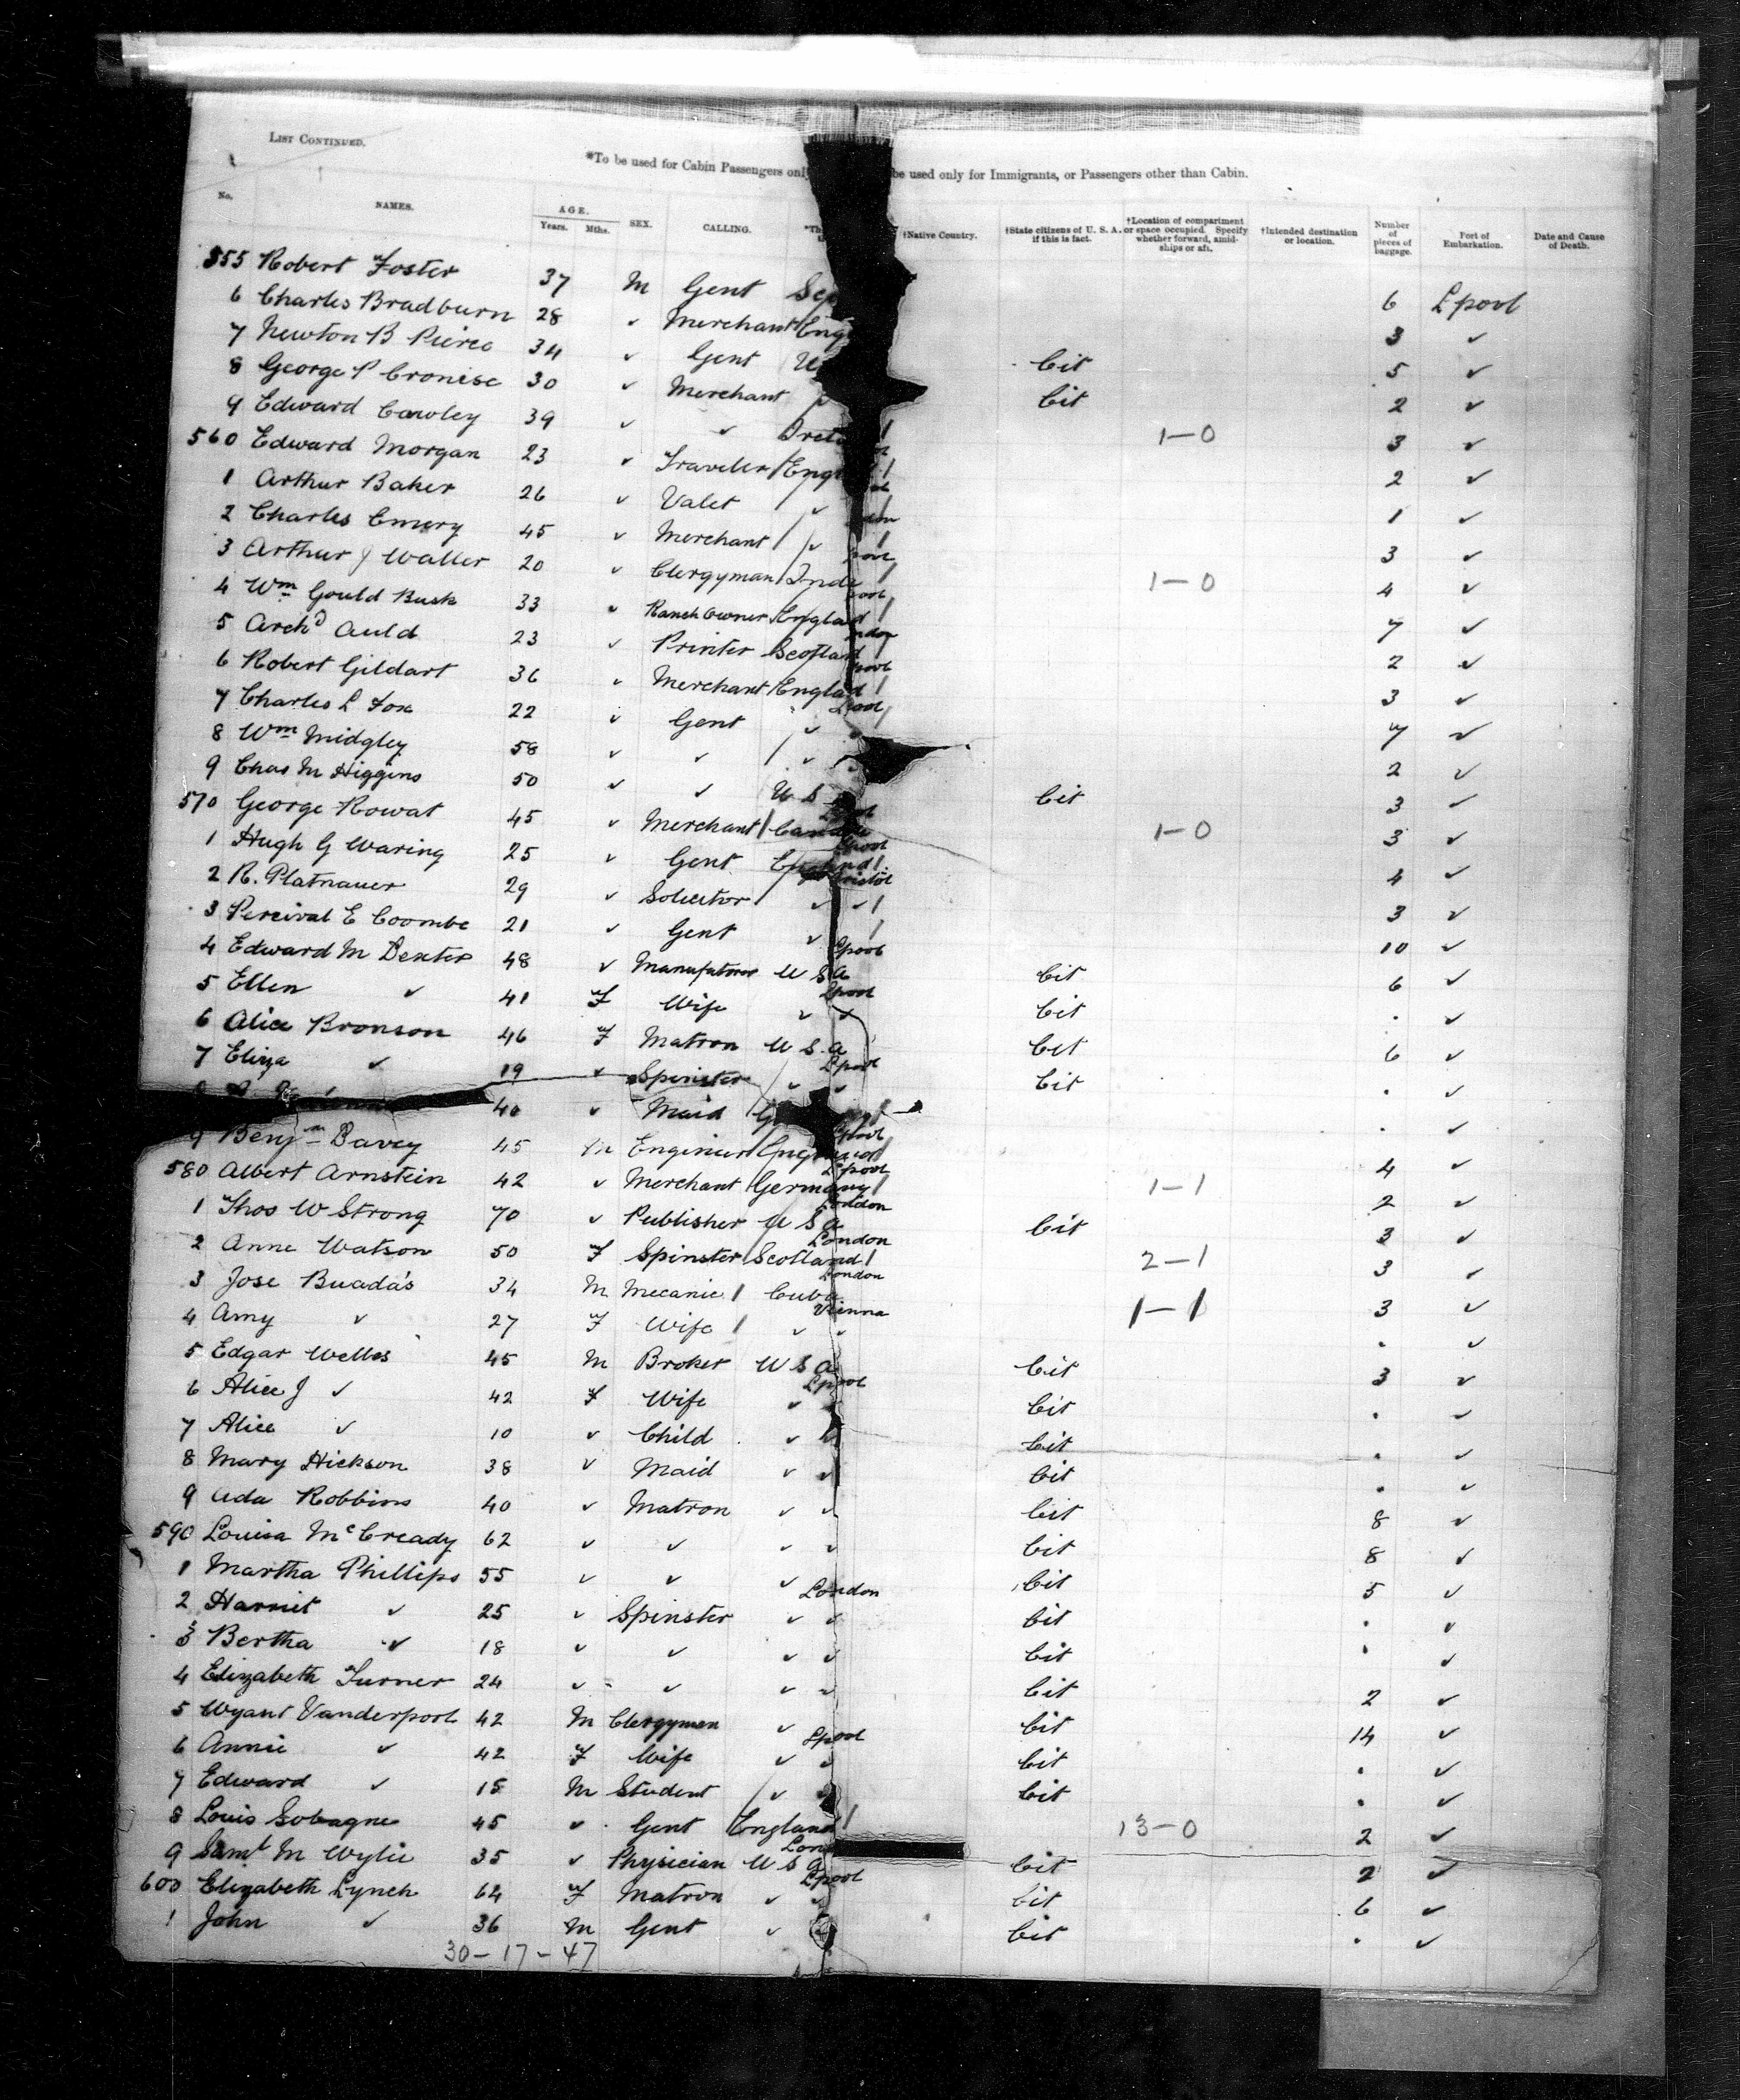 LIST CONTINUED.
*To be used for Cabin Passengers only be used only for Immigrants, or Passengers other than Cabin.
No. NAMES. AGE. Years. Mths. SEX. CALLING. †Native Country. †State citizens of U. S. A. if this is fact. †Location of compartment or space occupied. Specify whether forward, amidships or aft. †Intended destination or location. Number of pieces of baggage. Port of Embarkation. Date and Cause of Death.
555 Robert Foster 37 M Gent 6 Lpool
6 Charles Bradburn 28 ✓ Merchant Eng 3 ✓
7 Newton B Pierce 34 ✓ Gent U Cit 5 ✓
8 George P Cronise 30 ✓ Merchant Cit 2 ✓
9 Edward Cawley 39 ✓ ✓ 1-0 3 ✓
560 Edward Morgan 23 ✓ Traveler Eng 2 ✓
1 Arthur Baker 26 ✓ Valet ✓ 1 ✓
2 Charles Emery 45 ✓ Merchant ✓ 3 ✓
3 Arthur J Waller 20 ✓ Clergyman India 1-0 4 ✓
4 Wm Gould Busk 33 ✓ Ranch Owner England 7 ✓
5 Archd Auld 23 ✓ Printer Scotland 2 ✓
6 Robert Gildart 36 ✓ Merchant England 3 ✓
7 Charles L Fox 22 ✓ Gent ✓ Lpool 7 ✓
8 Wm Midgley 58 ✓ ✓ ✓ 2 ✓
9 Chas M Higgins 50 ✓ ✓ U S Cit 3 ✓
570 George Rowat 45 ✓ Merchant Canada Lpool 1-0 3 ✓
1 Hugh G Waring 25 ✓ Gent England Lpool 4 ✓
2 R. Platnauer 29 ✓ Solicitor ✓ ✓ Bristol 3 ✓
3 Percival E Coombe 21 ✓ Gent ✓ 10 ✓
4 Edward M Dexter 48 ✓ Manufaturer U S A Lpool Cit 6 ✓
5 Ellen ✓ 41 F Wife ✓ ✓ Lpool Cit . ✓
6 Alice Bronson 46 F Matron U S A Cit 6 ✓
7 Eliza ✓ 19 ✓ Spinster ✓ ✓ Lpool Cit . ✓
40 ✓ Maid G . ✓
9 Benjm Davey 45 M Engineer England Lpool 4 ✓
580 Albert Arnstein 42 ✓ Merchant Germany Lpool 1-1 2 ✓
1 Thos W Strong 70 ✓ Publisher U S A London Cit 3 ✓
2 Anne Watson 50 F Spinster Scotland London 2-1 3 ✓
3 Jose Buadas 34 M Mecanic Cuba London 1-1 3 ✓
4 Amy ✓ 27 F Wife ✓ ✓ Vienna . ✓
5 Edgar Welles 45 M Broker U S A Cit 3 ✓
6 Alice J ✓ 42 F Wife ✓ Lpool Cit . ✓
7 Alice ✓ 10 ✓ Child ✓ Cit . ✓
8 Mary Hickson 38 ✓ Maid ✓ ✓ Cit . ✓
9 Ada Robbins 40 ✓ Matron ✓ ✓ Cit 8 ✓
590 Louisa McCready 62 ✓ ✓ ✓ ✓ Cit 8 ✓
1 Martha Phillips 55 ✓ ✓ ✓ London Cit 5 ✓
2 Harriet ✓ 25 ✓ Spinster ✓ ✓ Cit . ✓
3 Bertha ✓ 18 ✓ ✓ ✓ ✓ Cit . ✓
4 Elizabeth Turner 24 ✓ ✓ ✓ ✓ Cit 2 ✓
5 Wyant Vanderpool 42 M Clergyman ✓ Lpool Cit 14 ✓
6 Annie ✓ 42 F Wife ✓ ✓ Cit . ✓
7 Edward ✓ 15 M Student ✓ ✓ Cit . ✓
8 Louis Sobagne 45 ✓ Gent England 13-0 2 ✓
9 Saml M Wylie 35 ✓ Physician U S A Cit 2 ✓
600 Elizabeth Lynch 64 F Matron ✓ Lpool Cit 6 ✓
1 John ✓ 36 M Gent ✓ Cit . ✓
30-17-47